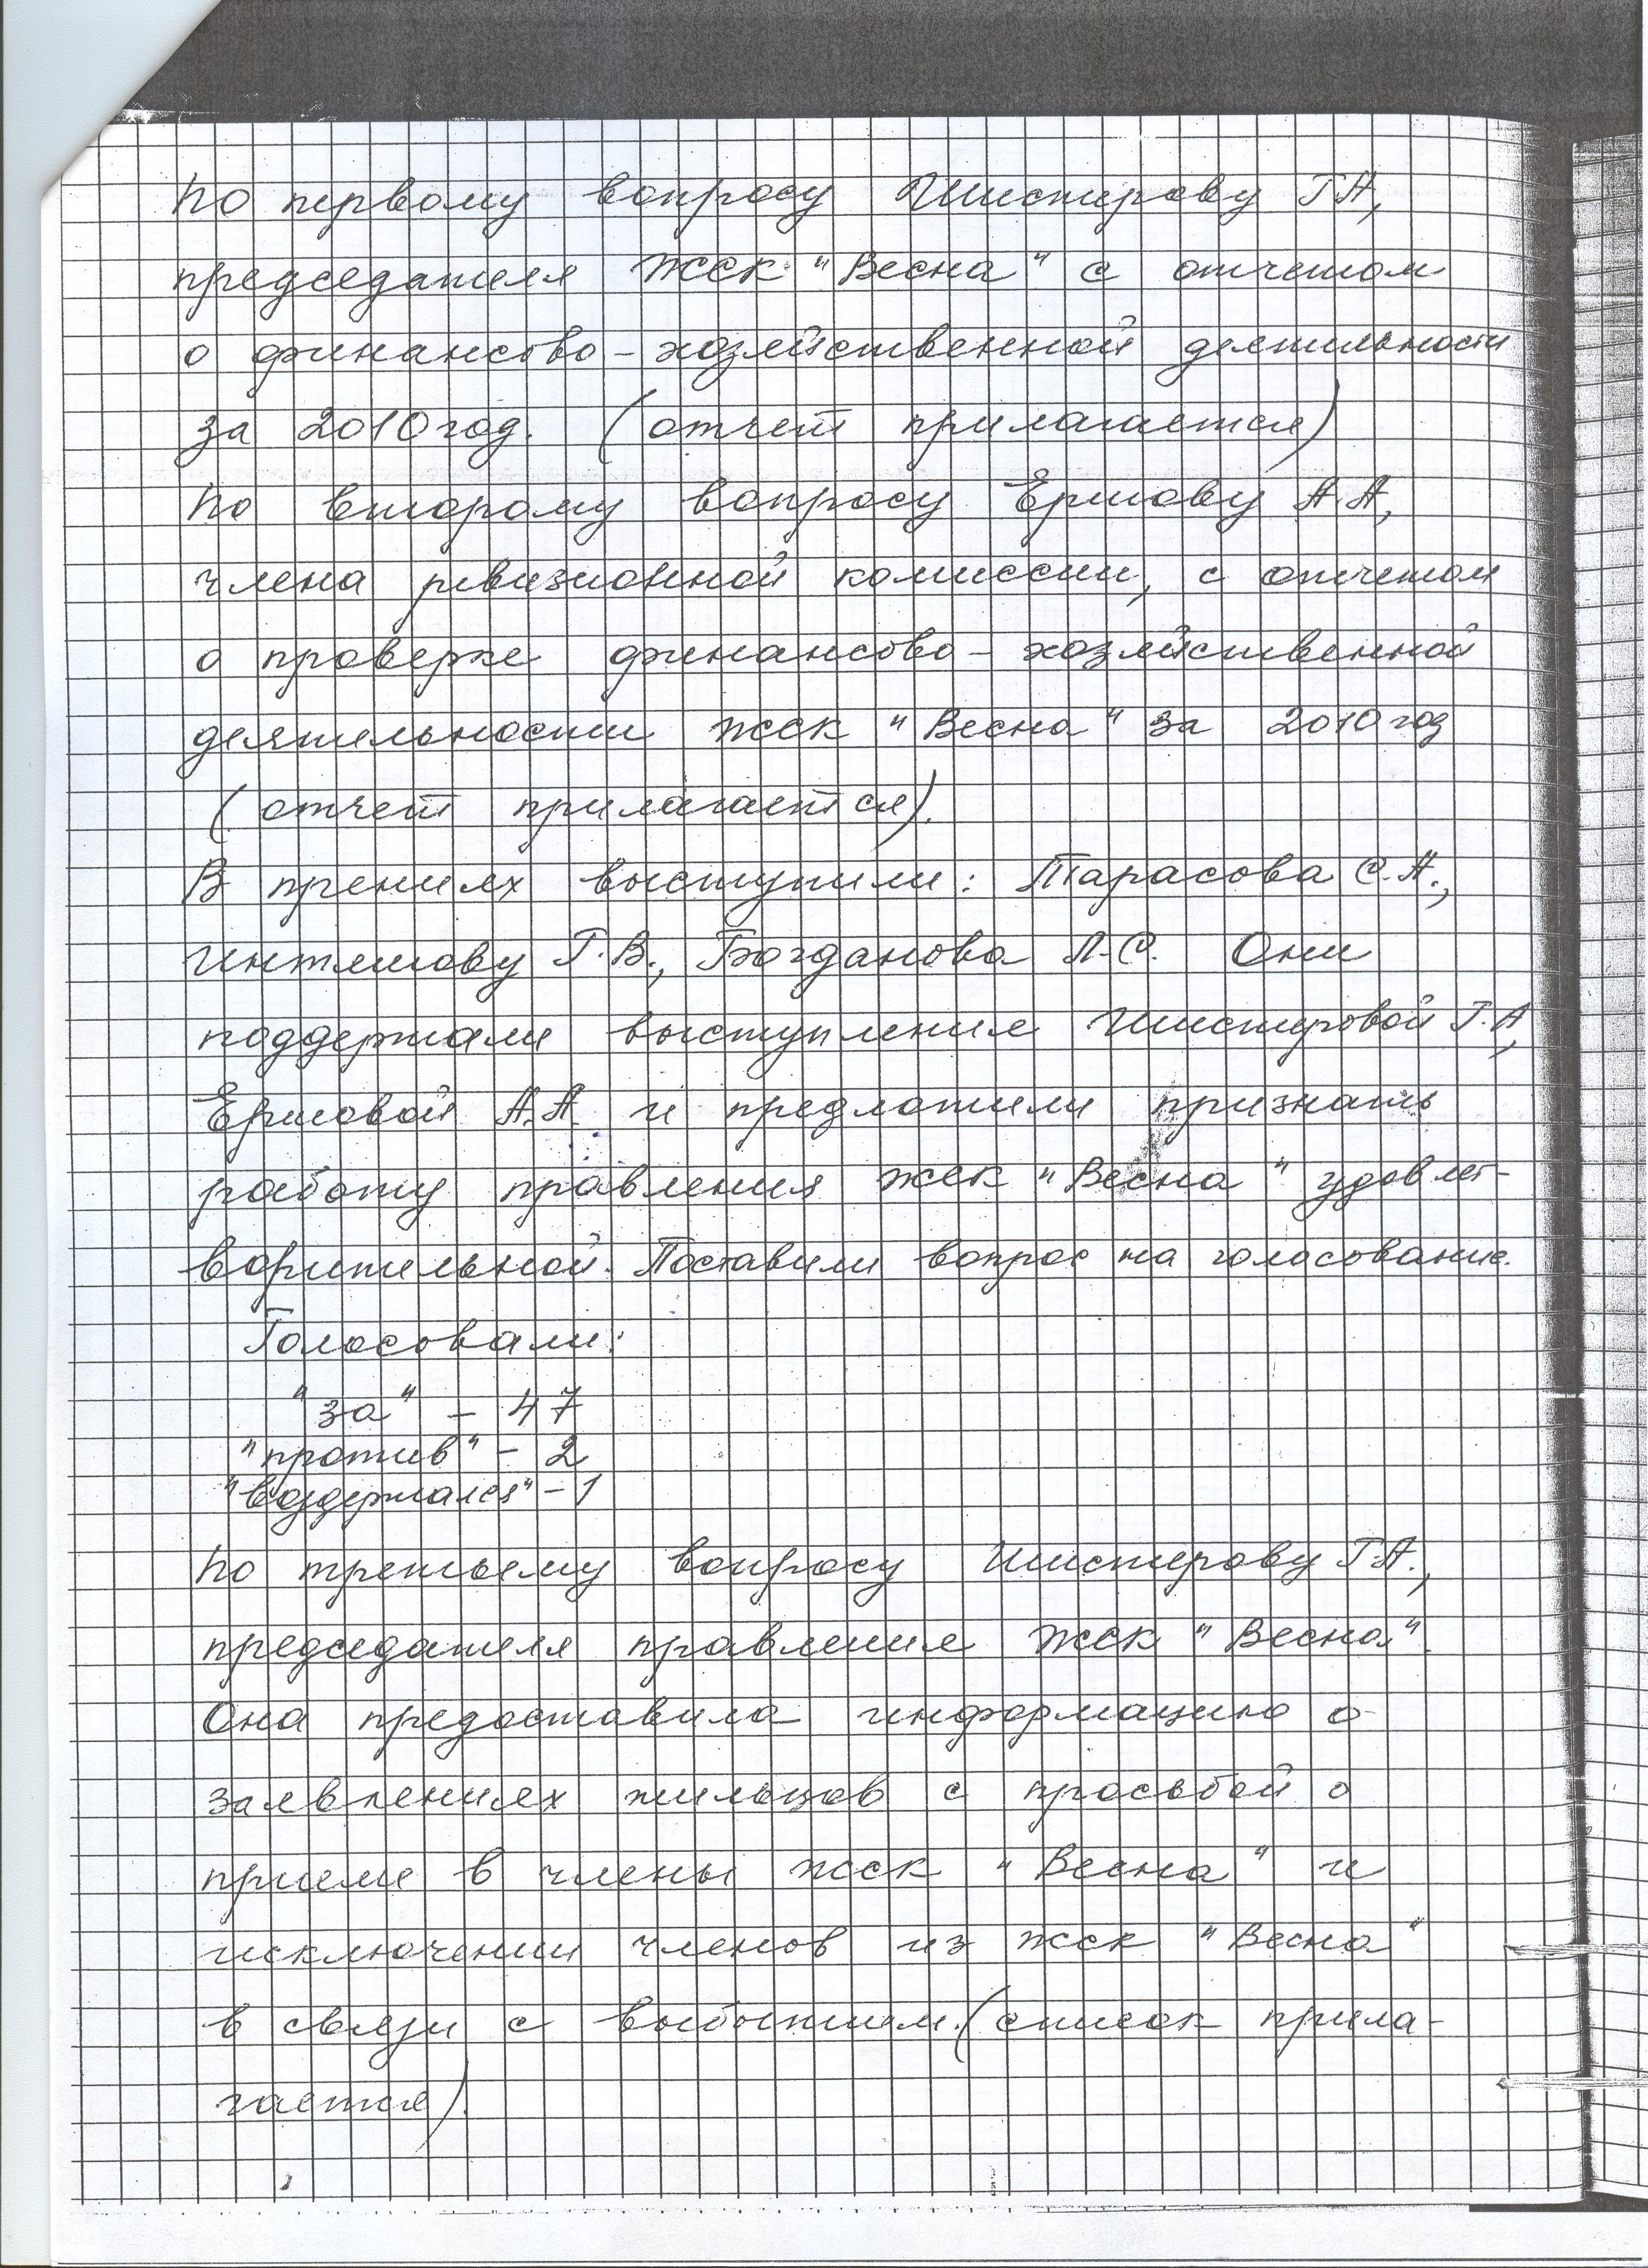 По первому вопросу Шистерову Г.А,
председателя ЖСК "Весна" с отчетом
о финансово-хозяйственной деятельности
за 2010 год. (отчет прилагается)
По второму вопросу Ершову А.А,
члена ревизионной комиссии, с отчетом
о проверке финансово-хозяйственной
деятельности ЖСК "Весна" за 2010 год
(отчет прилагается).
В прениях выступили: Тарасова С.А.,
Г.В., Богданова Л.С. Они
поддержали выступление Шистеровой Г.А,
Ершовой А.А. и предложили признать
работу правления ЖСК "Весна" удовлет-
ворительной. Поставили вопрос на голосование.
Голосовали:
"за" - 47
"против" - 2
"воздержался" - 1
По третьему вопросу Шистерову Г.А.,
председателя правление ЖСК "Весна".
Она предоставила информацию о
заявлениях жильцов с просьбой о
приеме в члены ЖСК "Весна" и
исключении членов из ЖСК "Весна"
в связи с выбытием. (список прила-
гается).